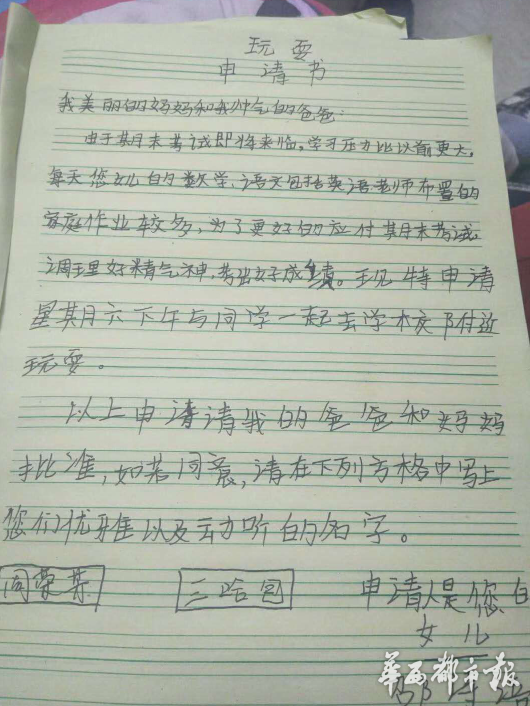 玩耍
申请书
我美丽的妈妈和我帅气的爸爸:
由于期末考试即将来临,学习压力比以前更大,
每天您女儿的数学、语文包括英语老师布置的
家庭作业较多,为了更好的应付期末考试,
调理好精气神,考出好成绩。现特申请
星期六下午与同学一起去学校附近
玩耍。
以上申请请我的爸爸和妈妈
批准,如若同意,请在下列方格中写上
您们优雅以及动听的名字。
三哈包 申请人是您的
女儿
华西都市报